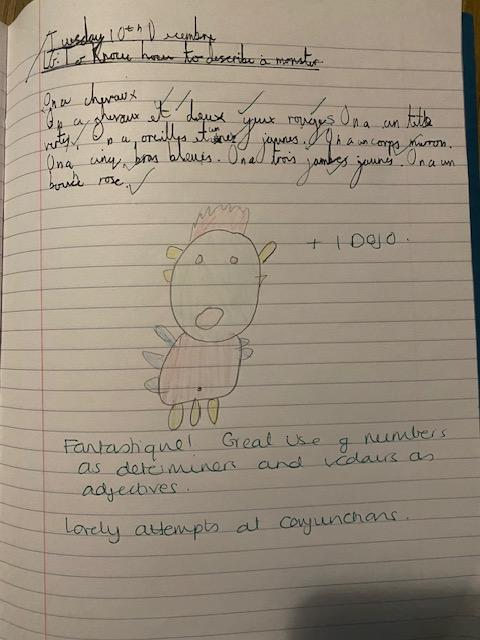 Tuesday 10th Decembre
L.I. To Know how to describe a monster
On a chevaux
On a chevaux et deux yeux rouges On a un tête
vertes. On a oreilles et un nez jaunes. On a un corps marron.
On a cinq bras bleus. On a trois jambes jaunes. On a un
bouche rose.
+ 1 DOJO.
Fantastique! Great use of numbers
as determiners and colours as
adjectives.
Lovely attempts at conjunctions.